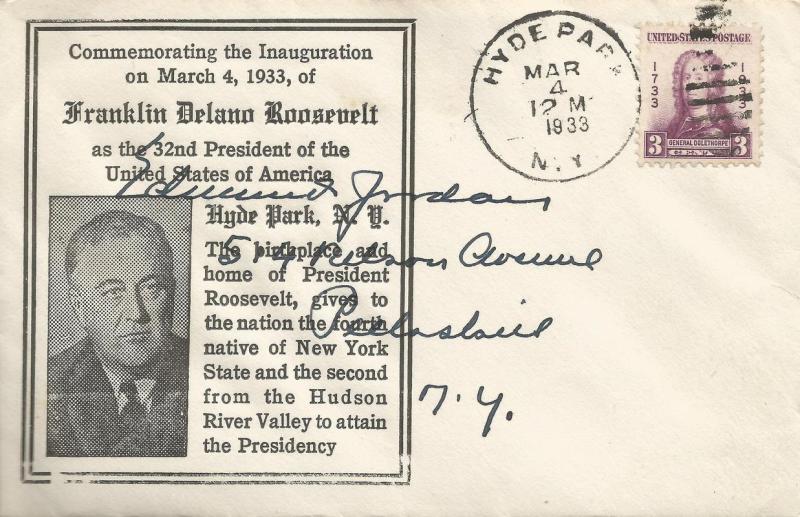 Commemorating the Inauguration
on March 4, 1933, of
Franklin Delano Roosevelt
as the 32nd President of the
United States of America
Hyde Park, N. Y.
The birthplace and
home of President
Roosevelt, gives to
the nation the fourth
native of New York
State and the second
from the Hudson
River Valley to attain
the Presidency
HYDE PARK
MAR
4
12 M
1933
N.Y.
UNITED STATES POSTAGE
1733
1933
3 GENERAL OGLETHORPE 3
Edmund Jordan
54 Nelson Avenue
Peekskill
N.Y.